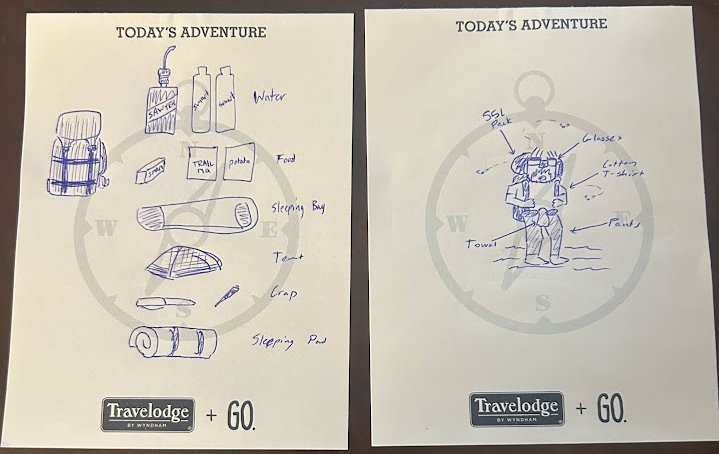 TODAY'S ADVENTURE
SAWYER
smart
smart
Water
SPAM
TRAIL MIX
potato
Food
Sleeping Bag
Tent
Crap
Sleeping Pad
N
W
E
S
Travelodge
BY WYNDHAM
+ GO.
TODAY'S ADVENTURE
55L Pack
Glasses
Cotton T-shirt
Towel
Pants
N
W
E
S
Travelodge
BY WYNDHAM
+ GO.